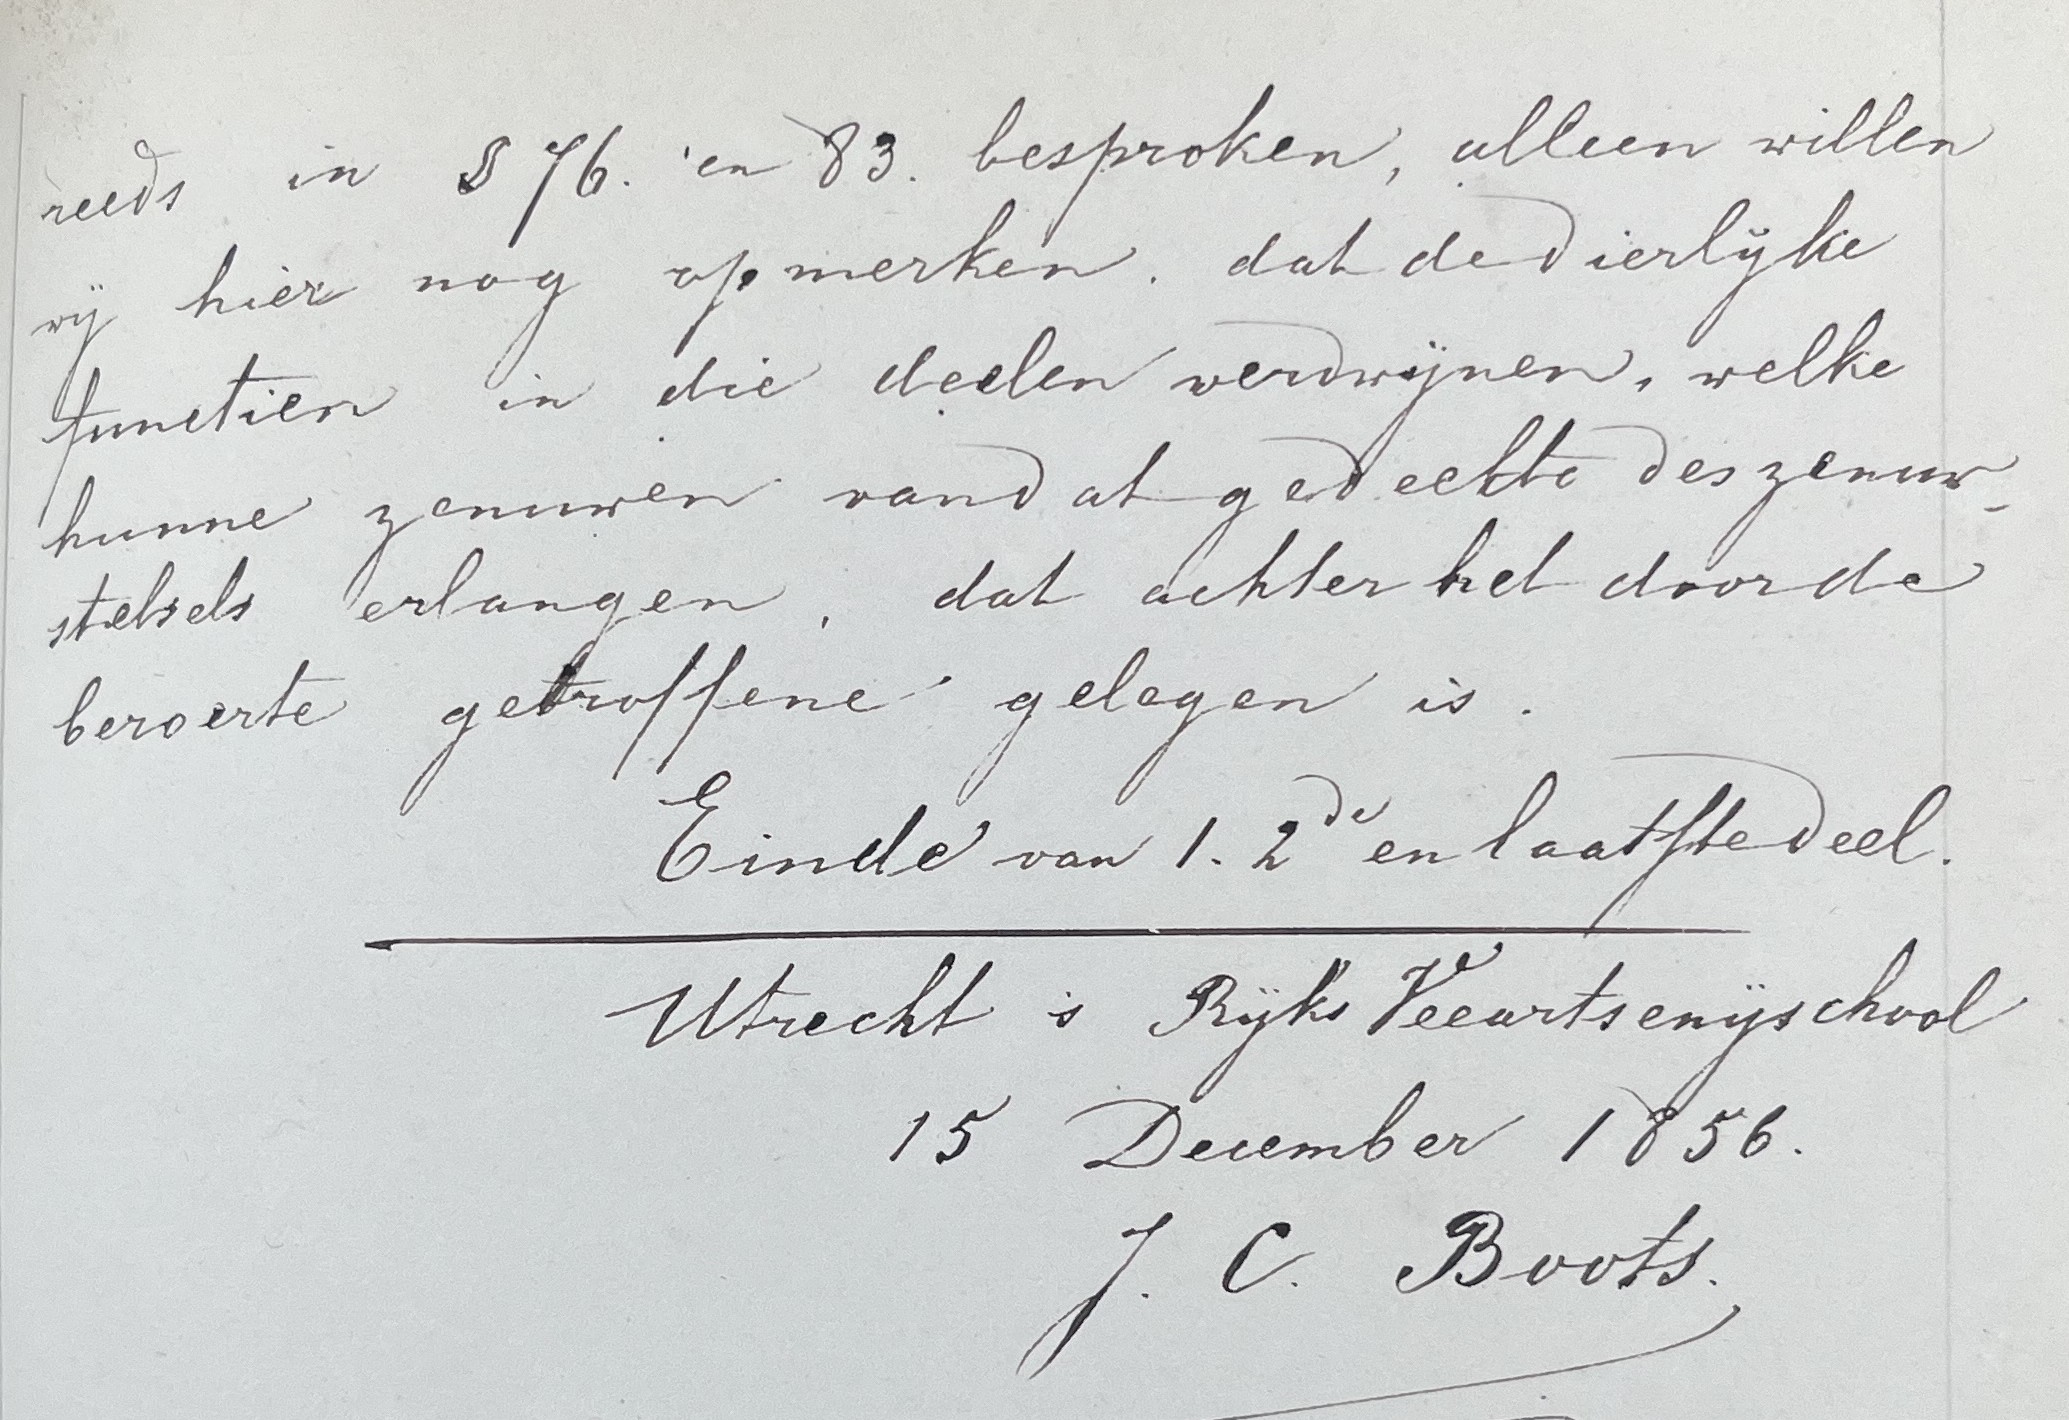 reeds in § 76. en 83. besproken, alleen willen
wij hier nog opmerken. dat de dierlijke
functien in die deelen verdwijnen, welke
hunne zenuwen van dat gedeelte des zenuw-
stelsels erlangen, dat achter het door de
beroerte getroffene gelegen is.
Einde van 1. 2de en laatste deel.
Utrecht is Rijks Veeartsenijschool
15 December 1856.
J. C. Boots.